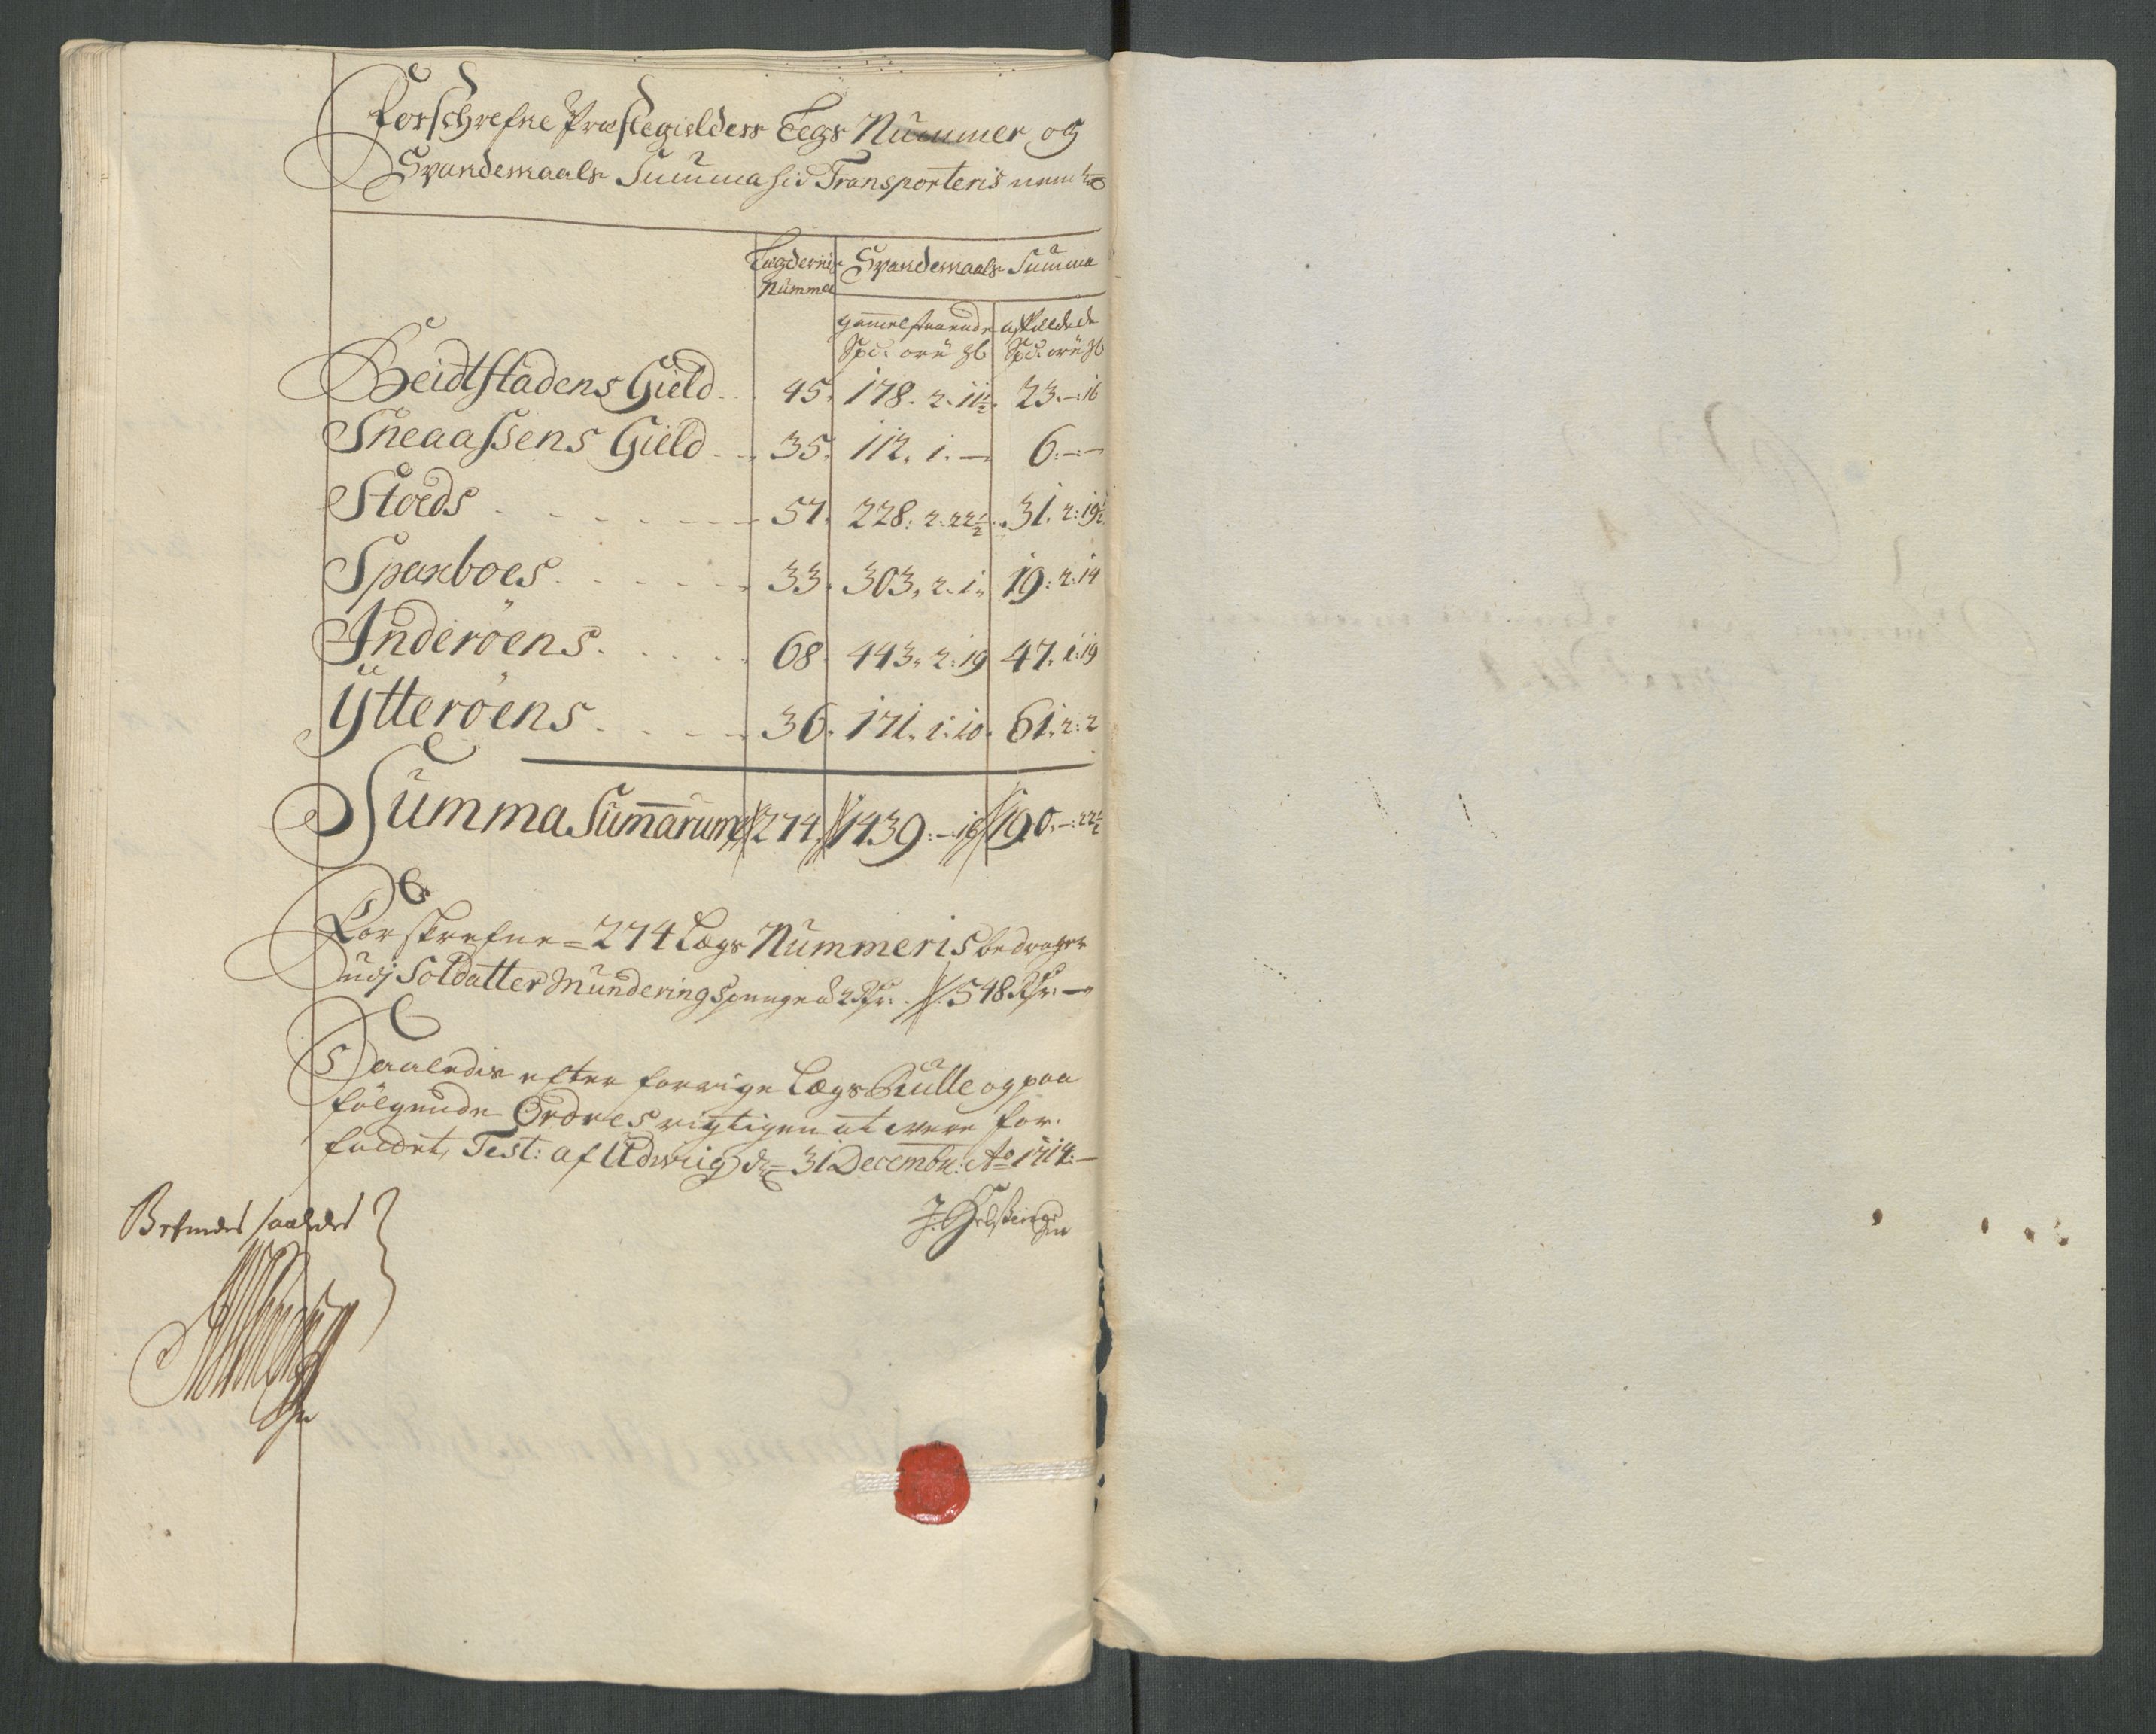 Forschrefne Præstegielders Legs Nummer og
Spandemaals Summa hid Transporteris neml:
Lægdernis Spandemaals Summa
Nummer
gammel staaende afældede
Spd. øre Mk Spd. øre Mk
Beidtstadens Gield. 45. 178. 2. 11½. 23.-:16
Sneaassens Gield 35. 112. 1. — 6.-:-
Stoeds 57. 228: 2:22½. 31. 2:19½
Sparboes 33. 303, 2. 1. 19: 2:14
Inderöens 68. 443. 2:19 47. 1:19
Ytteröens 36. 171. 1:10. 61. 2:2
Summa Sumarum 274. 1439:-:16 190.-:22½
Forskrefne = 274 Lægs Nummeris bedrager
udj Soldatter Munderings penge a 2 Rdr. 548 Rdr: —
Saaledis efter forrige Lægs Rulle og paa
fölgende Ordres rigtigen at were for-
fattet, Test: af Udwiig d: 31 Decembr: Ao 1714:—
Befindes saaledes